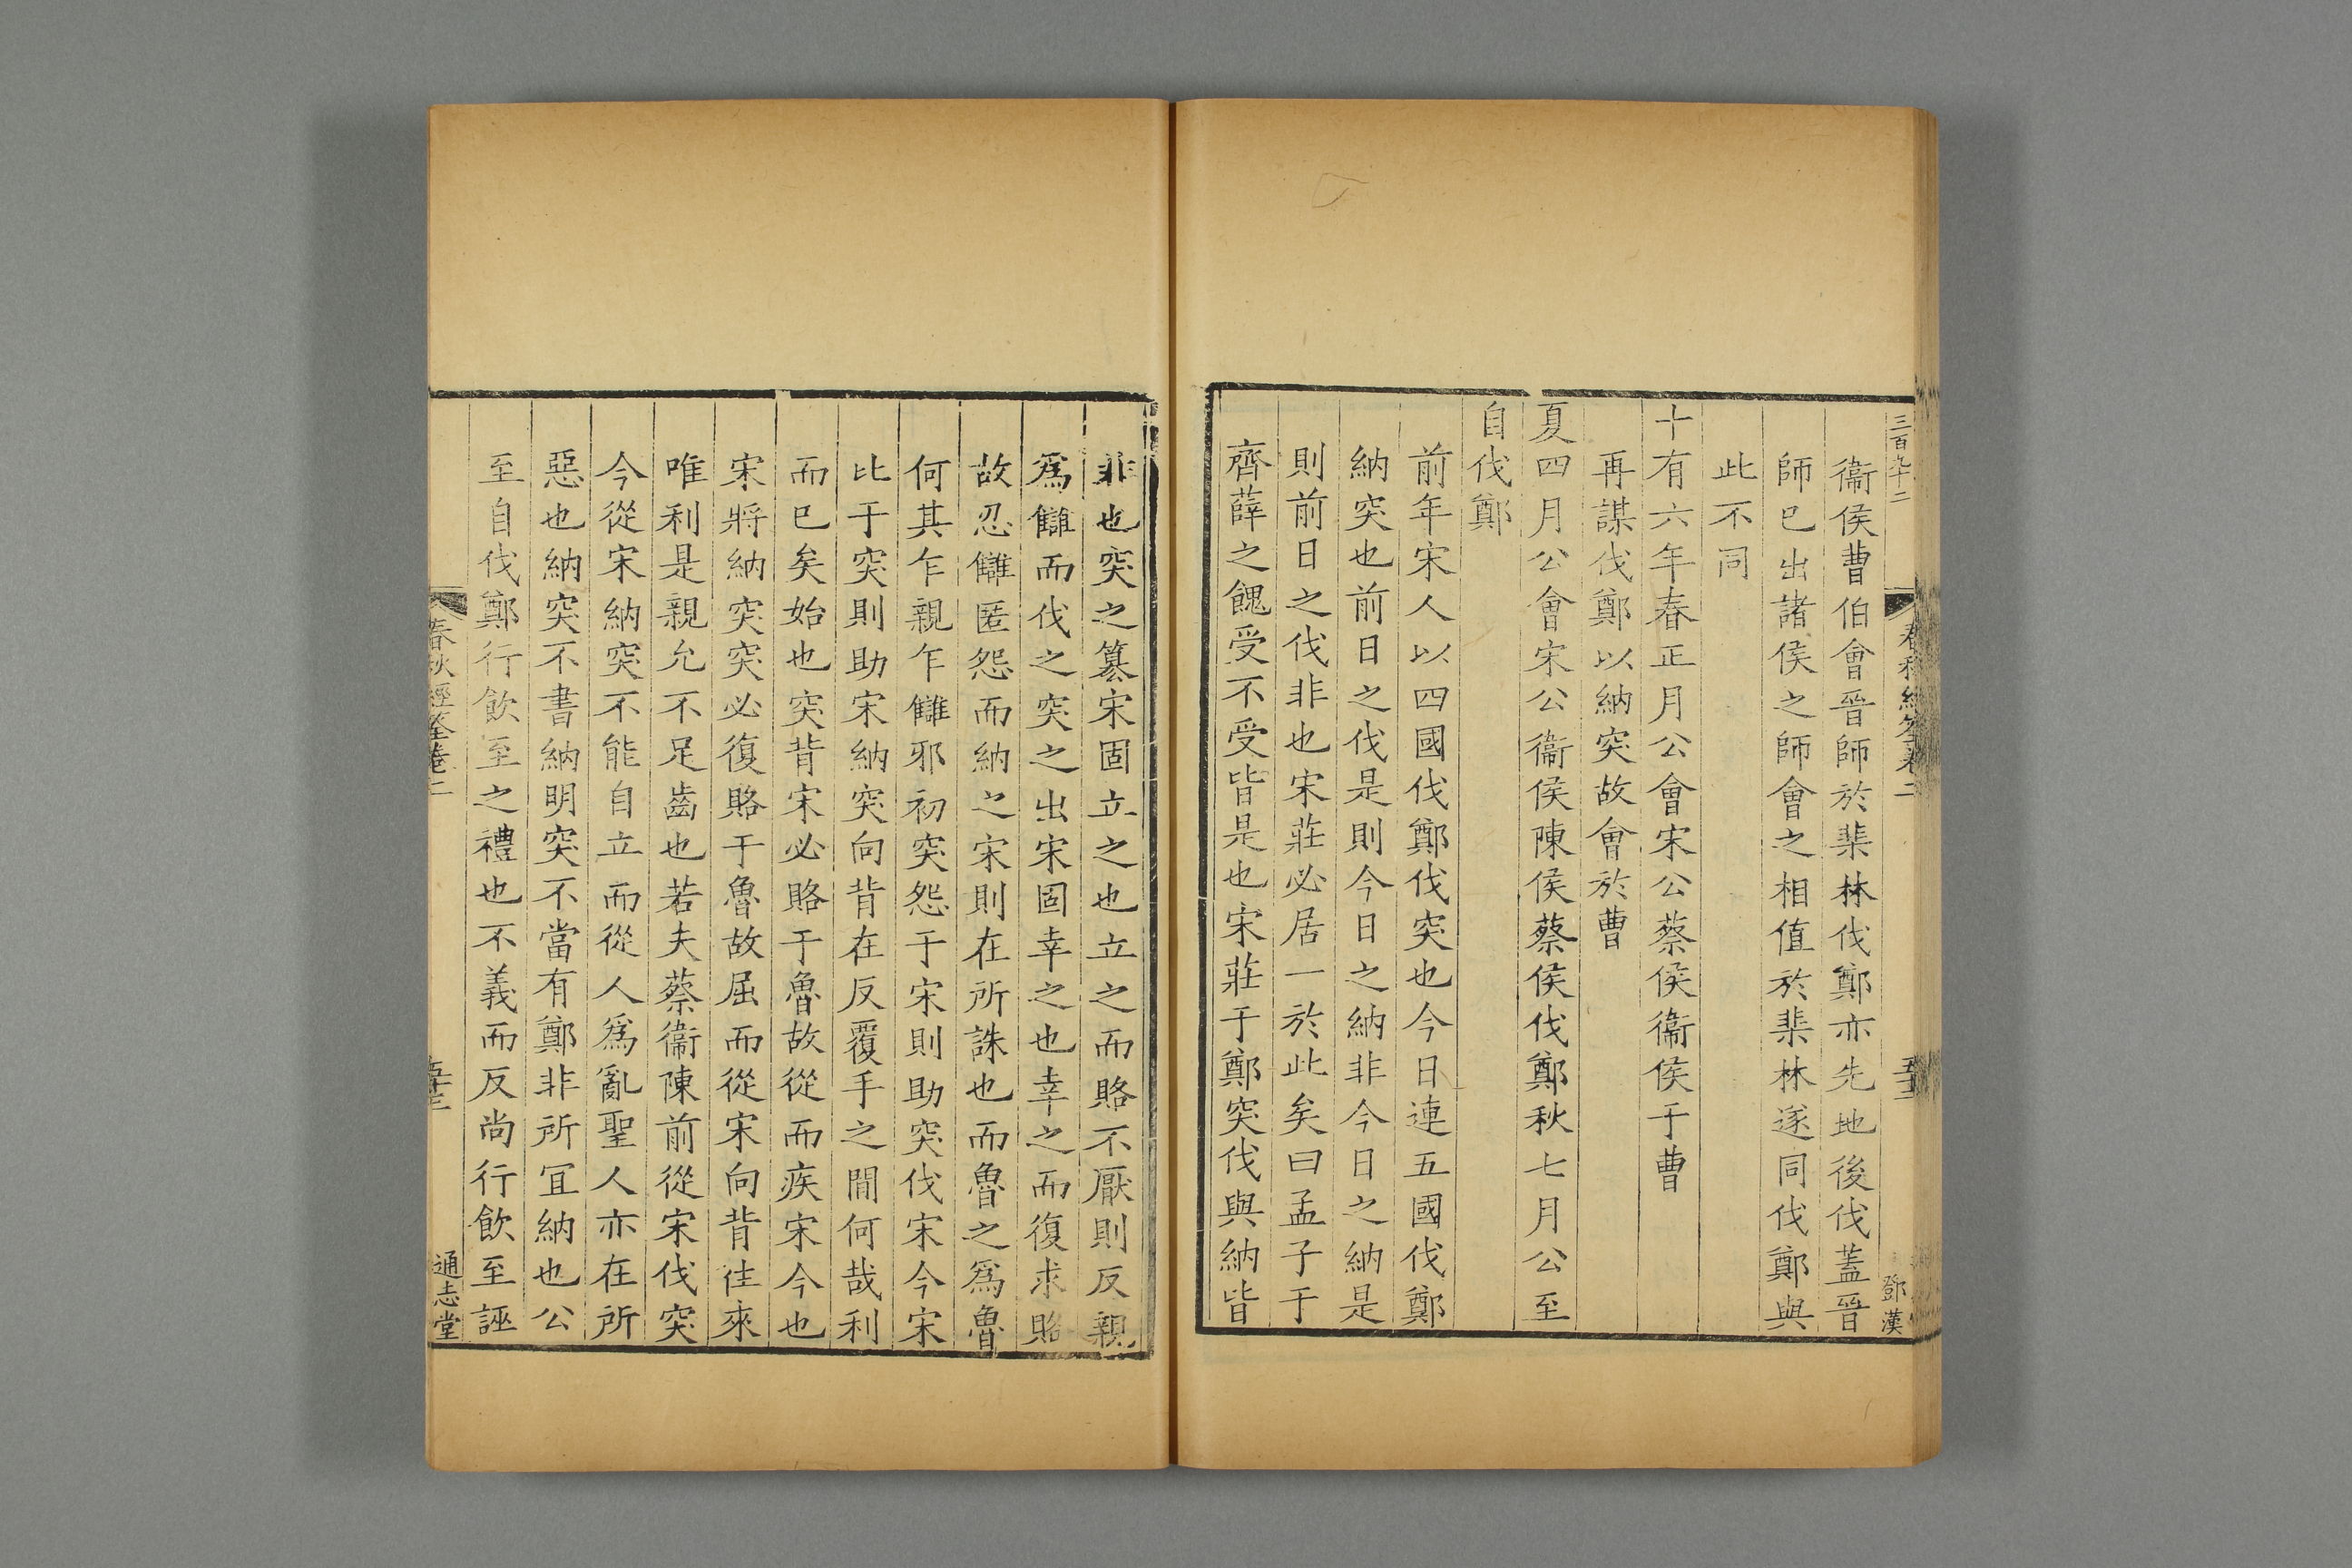 三百九十二
鄧漢
衞侯曹伯會晉師於棐林伐鄭亦先地後伐蓋晉
師巳出諸侯之師會之相值於棐林遂同伐鄭與
此不同
十有六年春正月公會宋公蔡侯衞侯于曹
再謀伐鄭以納突故會於曹
夏四月公會宋公衞侯陳侯蔡侯伐鄭秋七月公至
自伐鄭
前年宋人以四國伐鄭伐突也今日連五國伐鄭
納突也前日之伐是則今日之納非今日之納是
則前日之伐非也宋莊必居一於此矣曰孟子于
齊薛之餽受不受皆是也宋莊于鄭突伐與納皆
非也突之篡宋固立之也立之而賂不厭則反親
爲讎而伐之突之出宋固幸之也幸之而復求賂
故忍讎匿怨而納之宋則在所誅也而魯之爲魯
何其乍親乍讎邪初突怨于宋則助突伐宋今宋
比于突則助宋納突向背在反覆手之間何哉利
而巳矣始也突背宋必賂于魯故從而疾宋今也
宋將納突突必復賂于魯故屈而從宋向背徃來
唯利是親允不足齒也若夫蔡衞陳前從宋伐突
今從宋納突不能自立而從人爲亂聖人亦在所
惡也納突不書納明突不當有鄭非所宜納也公
至自伐鄭行飲至之禮也不義而反尚行飲至誣
春秋經筌卷二
五十三
通志堂